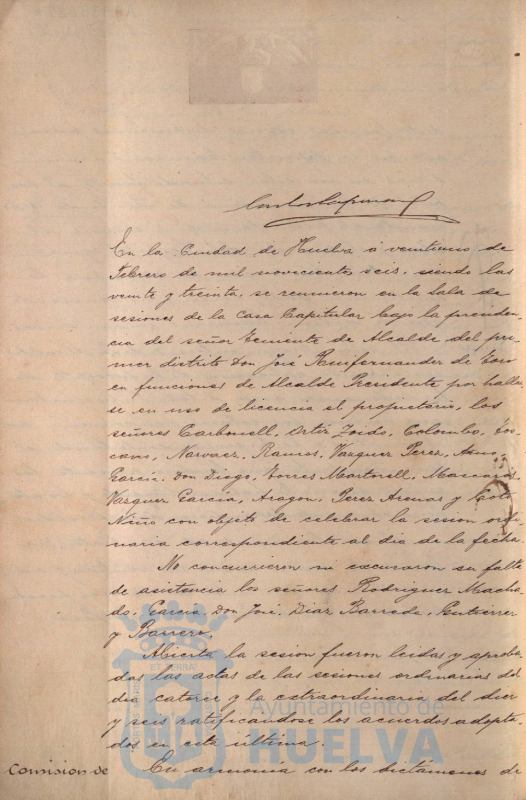 En la Ciudad de Huelva á veintiuno de
Febrero de mil novecientos seis, siendo las
veinte y treinta, se reunieron en la Sala de
sesiones de la Casa Capitular bajo la presiden-
cia del señor Teniente de Alcalde del pri-
mer distrito Don José Ruifernandez de Toro
en funciones de Alcalde Presidente por hallar-
se en uso de licencia el propietario, los
señores Carbonell, Ortiz Zoido, Colombo, Tos-
cano, Narvaez, Ramos, Vazquez Perez,
García, Don Diego, Torres Martorell, Mascarós
Vazquez García, Aragon, Perez Arenas y Soto
Niño con objeto de celebrar la sesion ordi-
naria correspondiente al dia de la fecha.
No concurrieron ni excusaron su falta
de asistencia los señores Rodriguez Macha-
do, García, Don José, Diaz Barreda, Gutierrez
y Barrero.
Abierta la sesion fueron leidas y aproba-
das las actas de las sesiones ordinarias del
dia catorce y la extraordinaria del diez
y seis ratificandose los acuerdos adopta-
dos en esta última.
Comision de En armonía con los dictámenes de
Ayuntamiento de
HUELVA